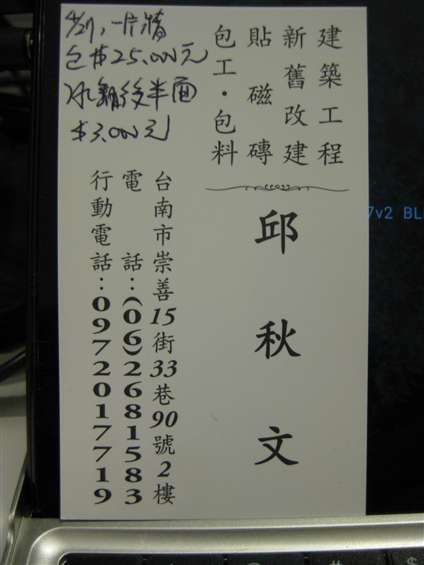 建築工程
新舊改建
貼磁磚
包工·包料
邱秋文
台南市崇善15街33巷90號2樓
電話:(06)2681583
行動電話:0972017719
包$25,000元
半面
$3,000元
7v2 BL